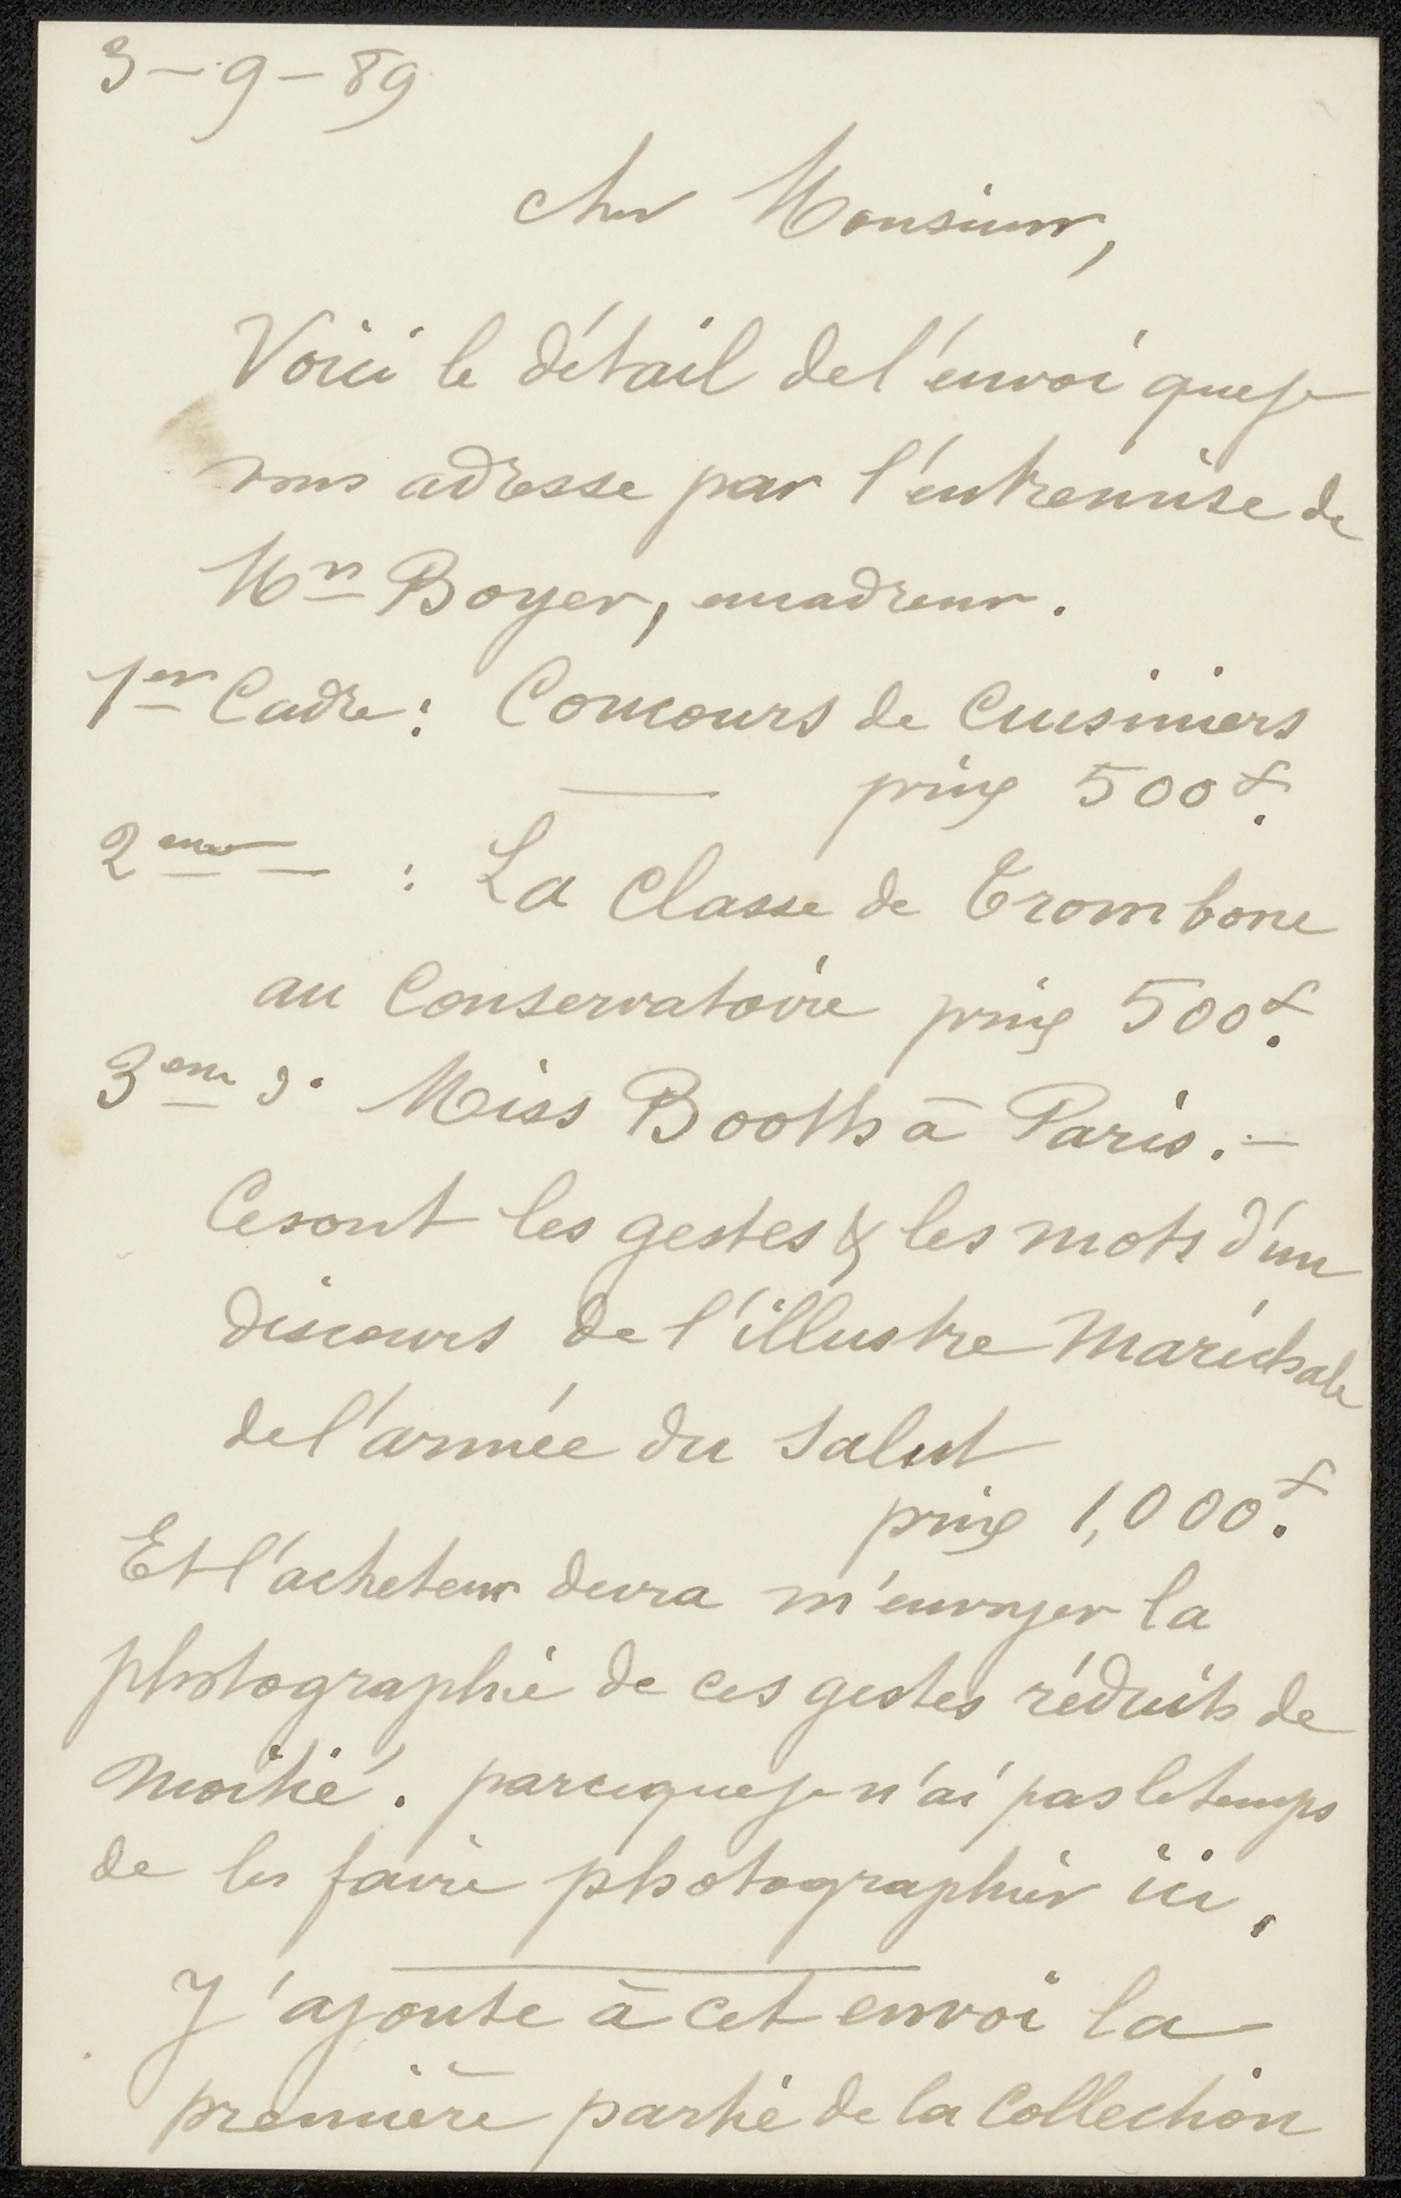 3-9-89
Cher Monsieur,
Voici le détail de l'envoi que je
vous adresse par l'entremise de
Mr Boyer, encadreur.
1er Cadre : Concours de Cuisiniers
— prix 500 f.
2eme — : La Classe de Trombone
au Conservatoire prix 500 f.
3eme d. Miss Booth à Paris. —
Ce sont les gestes & les mots d'un
discours de l'illustre Maréchale
de l'armée du Salut
prix 1,000 f.
Et l'acheteur devra m'envoyer la
photographie de ces gestes réduits de
moitié. parceque je n'ai pas le temps
de les faire photographier ici.
J'ajoute à cet envoi la
première partie de la Collection